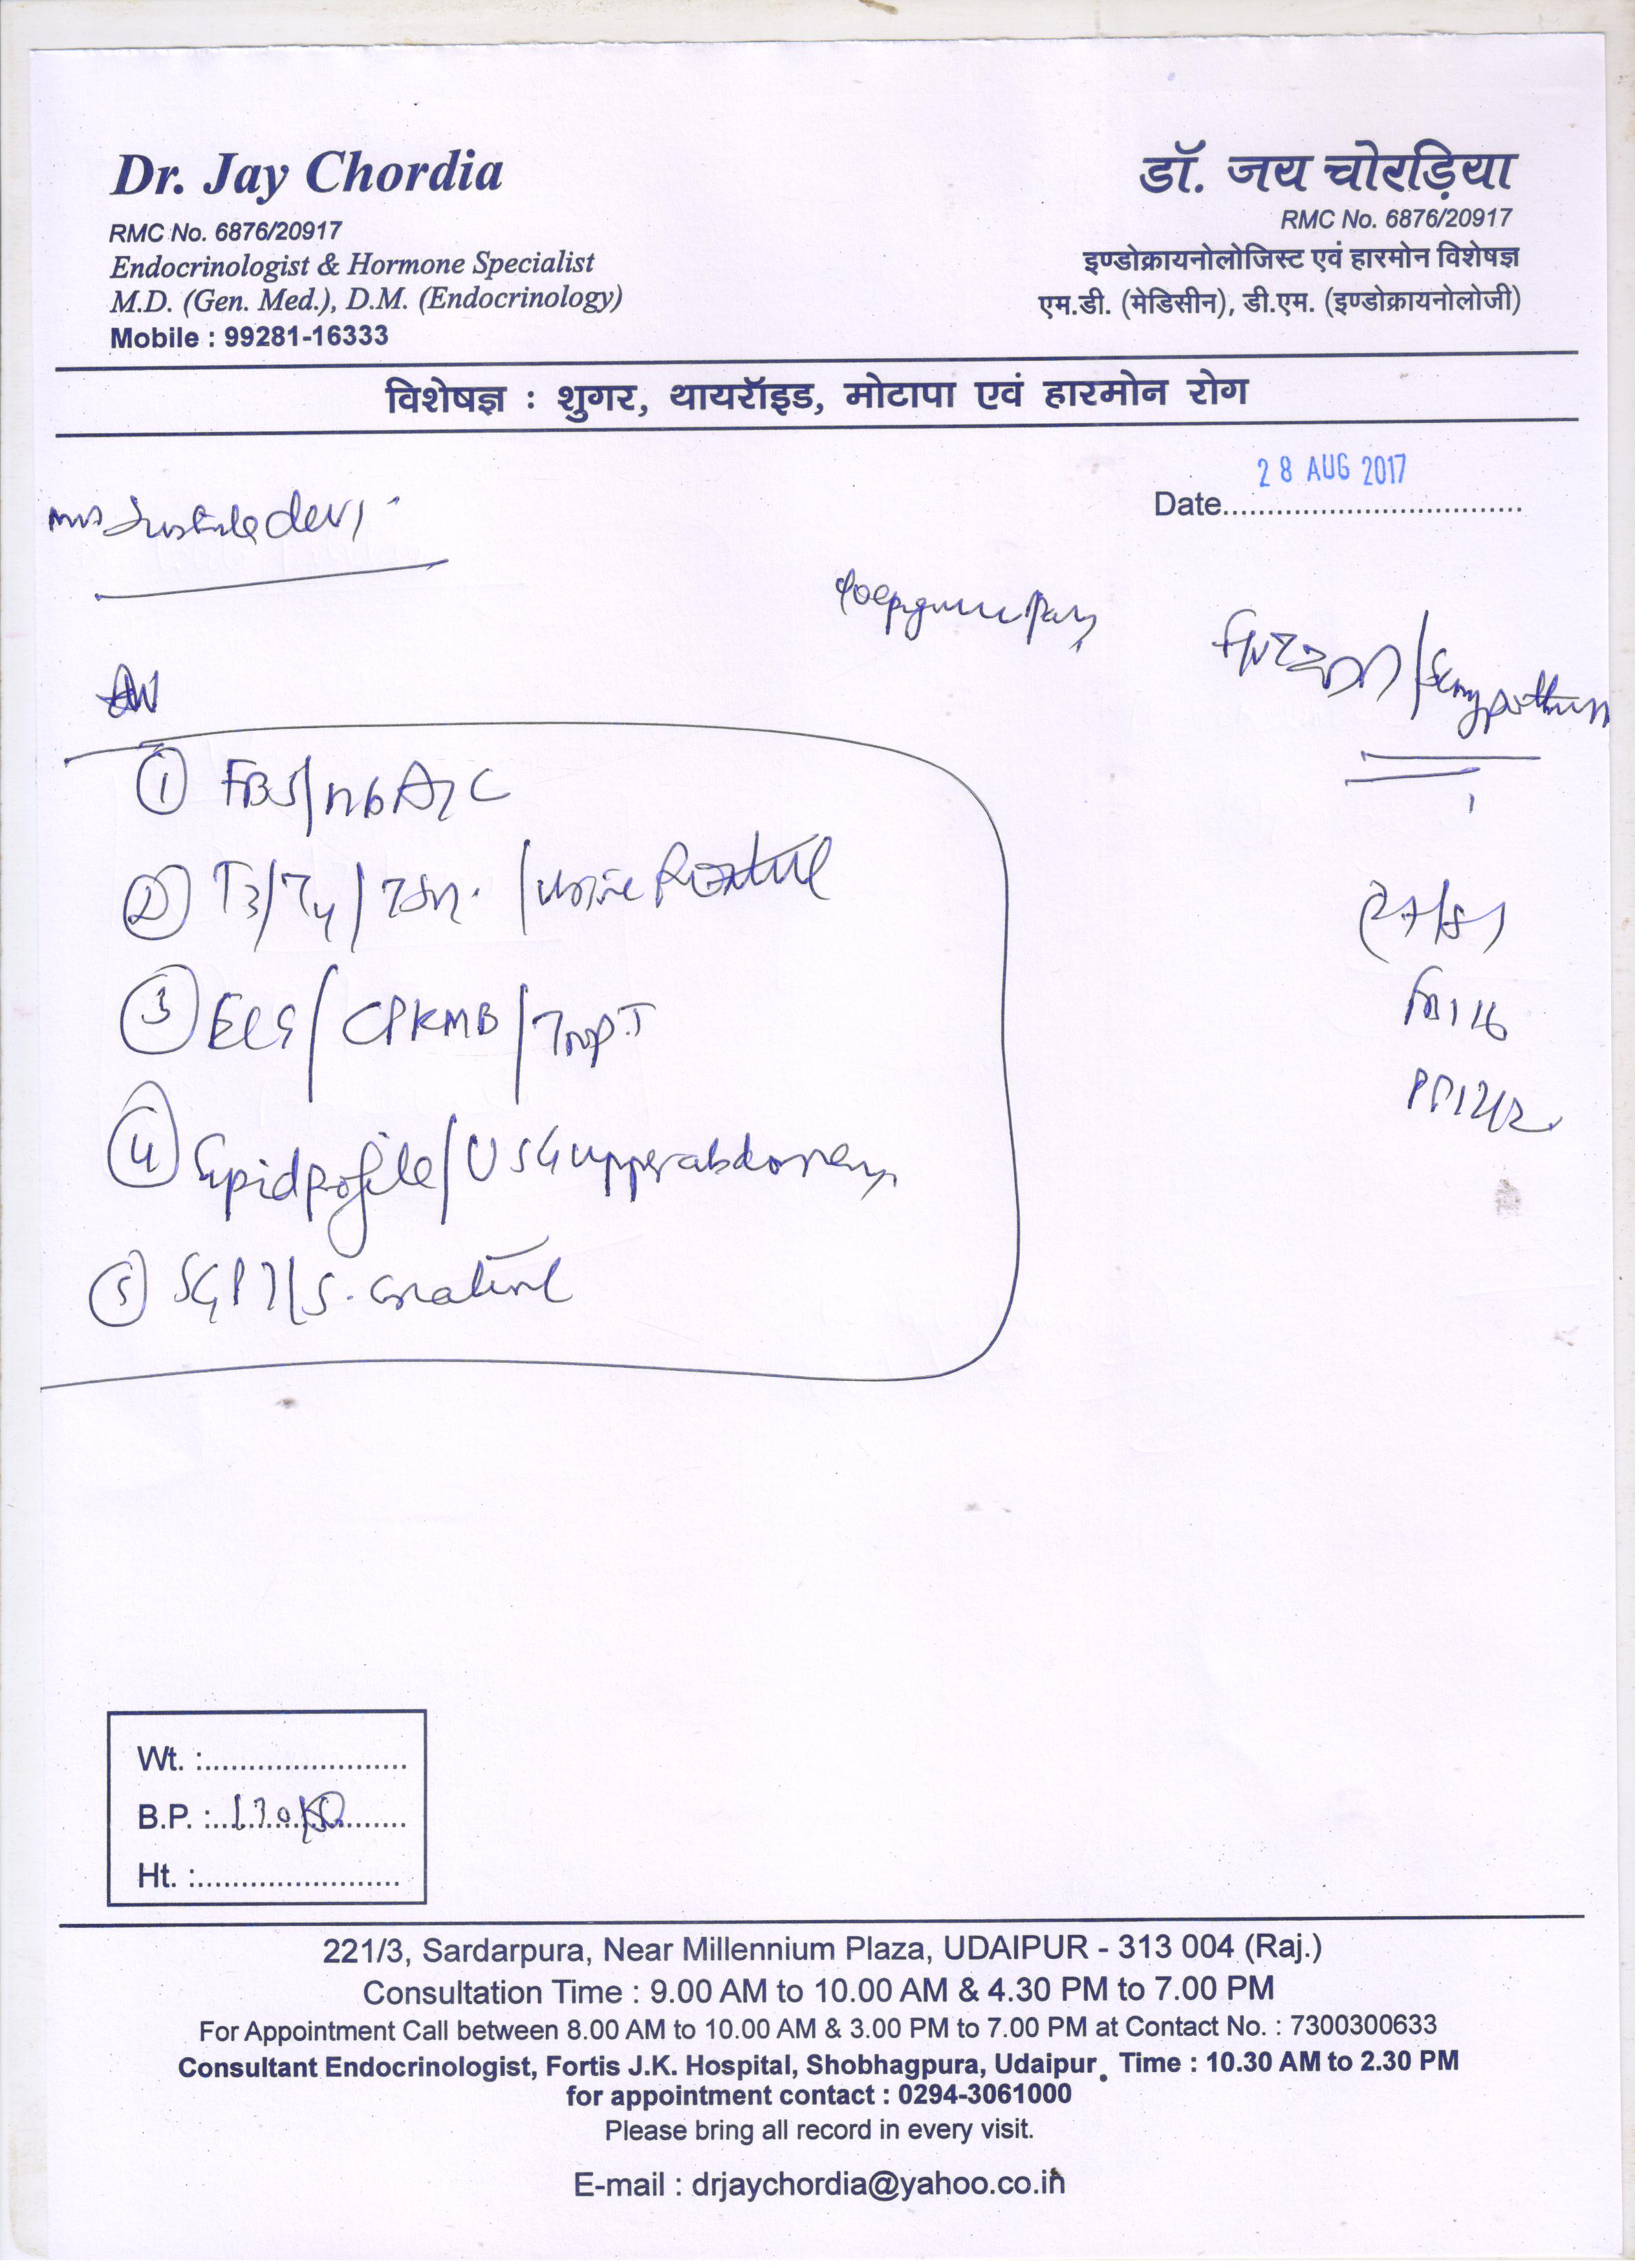 Dr. Jay Chordia
RMC No. 6876/20917
Endocrinologist & Hormone Specialist
M.D. (Gen. Med.), D.M. (Endocrinology)
Mobile : 99281-16333
डॉ. जय चोरड़िया
RMC No. 6876/20917
इण्डोक्रायनोलोजिस्ट एवं हारमोन विशेषज्ञ
एम.डी. (मेडिसीन), डी.एम. (इण्डोक्रायनोलोजी)
विशेषज्ञ : शुगर, थायरॉइड, मोटापा एवं हारमोन रोग
28 AUG 2017
Date
devi
① FBS/HbA1C
② T3/T4/TSH. /Urine Routine
③ ECG/CPKMB/Trop.T
④ Lipid profile/USG upper abdomen
⑤ SGPT/S. creatinine
Wt. :
B.P. :
Ht. :
221/3, Sardarpura, Near Millennium Plaza, UDAIPUR - 313 004 (Raj.)
Consultation Time : 9.00 AM to 10.00 AM & 4.30 PM to 7.00 PM
For Appointment Call between 8.00 AM to 10.00 AM & 3.00 PM to 7.00 PM at Contact No. : 7300300633
Consultant Endocrinologist, Fortis J.K. Hospital, Shobhagpura, Udaipur. Time : 10.30 AM to 2.30 PM
for appointment contact : 0294-3061000
Please bring all record in every visit.
E-mail : drjaychordia@yahoo.co.in